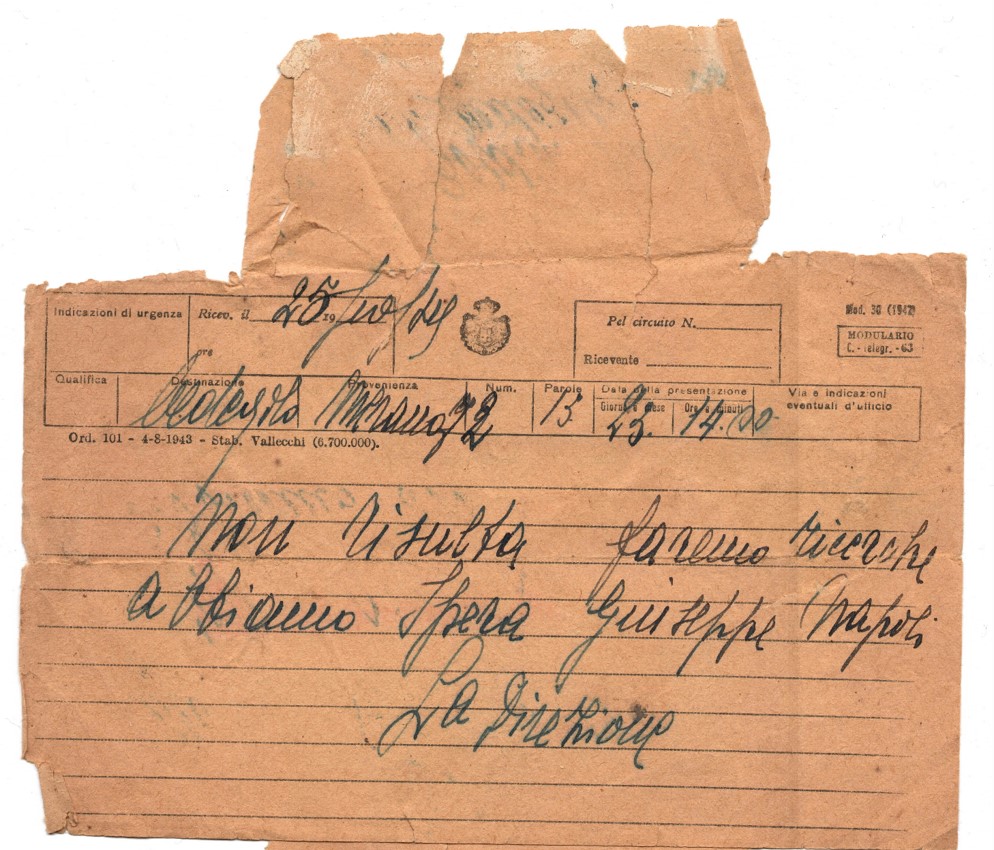 Indicazioni di urgenza
Ricev. il 25 19
ore
Pel circuito N.
Ricevente
Mod. 30 (1942)
MODULARIO
C. - Telegr. - 63
Qualifica
Destinazione
Provenienza
Num.
Parole
Data della presentazione
Giorno e mese
Ore e minuti
Via e indicazioni
eventuali d'ufficio
Merano 72 13 23. 14.00
Ord. 101 - 4-8-1943 - Stab. Vallecchi (6.700.000).
Non risulta faremo ricerche
abbiamo Spera Giuseppe Napoli
La Direzione